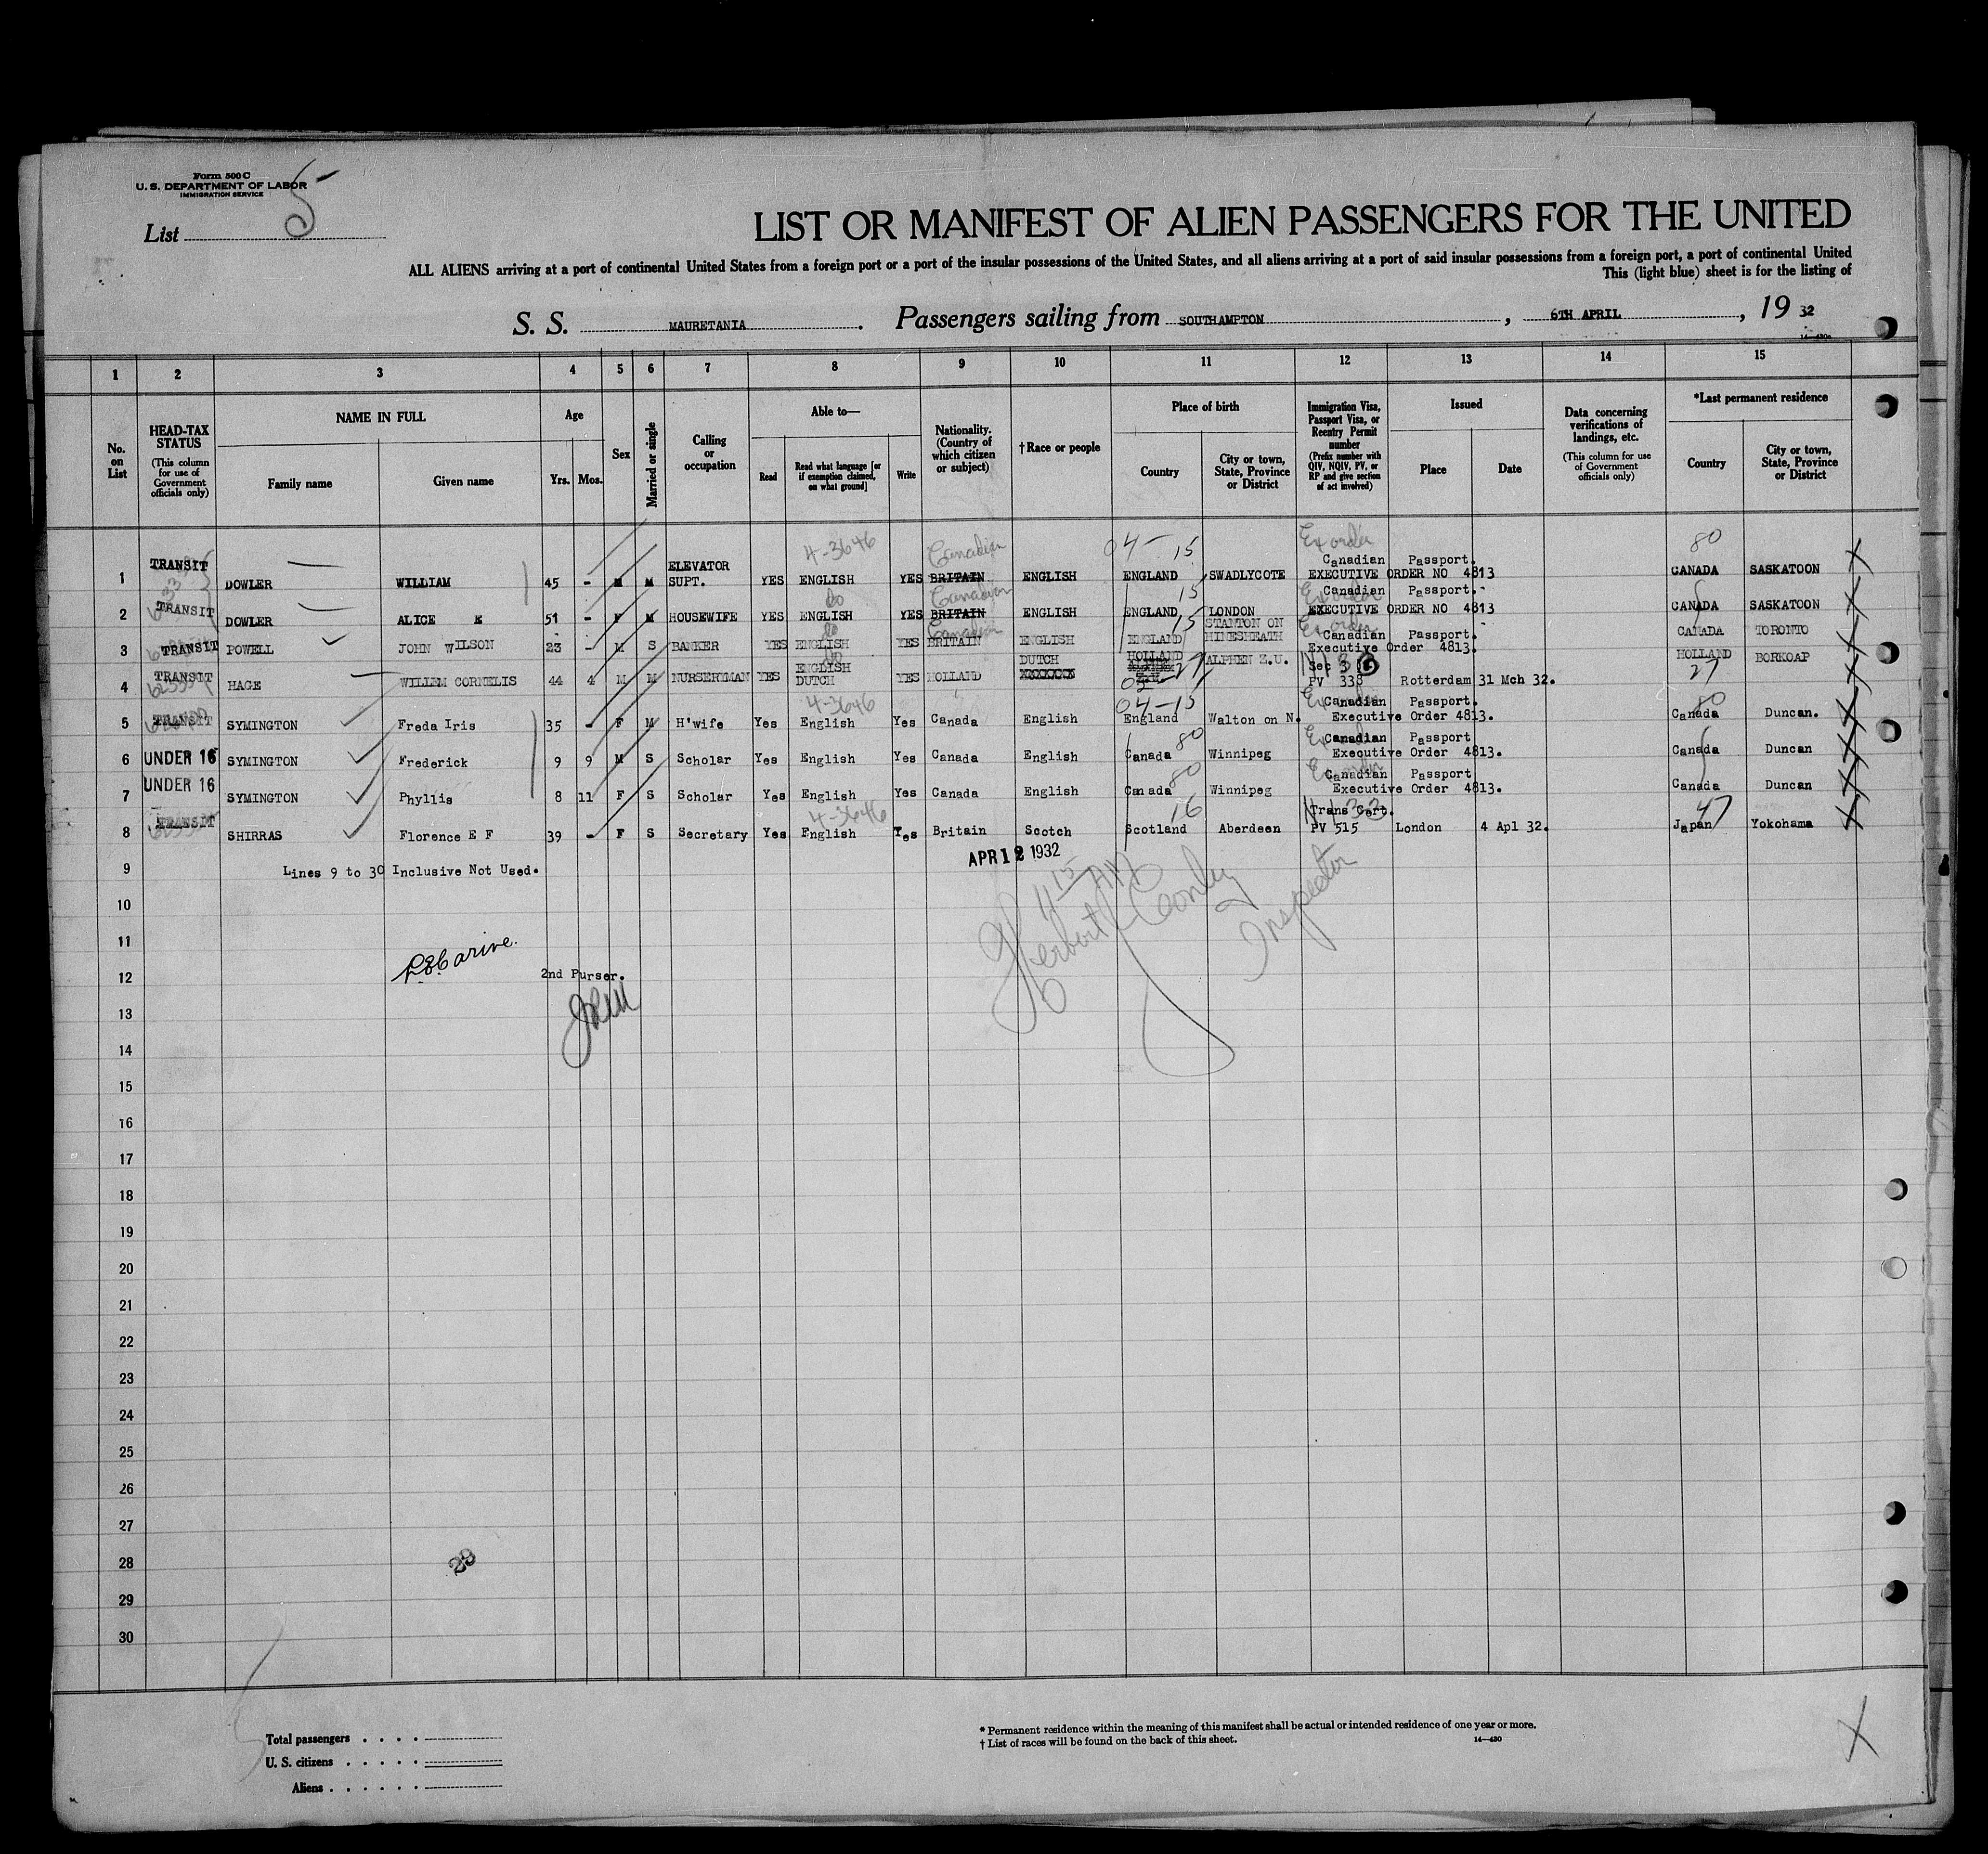 Form 500 C
U. S. DEPARTMENT OF LABOR
IMMIGRATION SERVICE
List 5
LIST OR MANIFEST OF ALIEN PASSENGERS FOR THE UNITED
ALL ALIENS arriving at a port of continental United States from a foreign port or a port of the insular possessions of the United States, and all aliens arriving at a port of said insular possessions from a foreign port, a port of continental United
This (light blue) sheet is for the listing of
S. S. MAURETANIA. Passengers sailing from SOUTHAMPTON, 6TH APRIL, 19 32
1 2 3 4 5 6 7 8 9 10 11 12 13 14 15
No. on List
HEAD-TAX STATUS (This column for use of Government officials only)
NAME IN FULL
Family name
Given name
Age
Yrs. Mos.
Sex
Married or single
Calling or occupation
Able to—
Read
Read what language [or if exemption claimed, on what ground]
Write
Nationality. (Country of which citizen or subject)
†Race or people
Place of birth
Country
City or town, State, Province or District
Immigration Visa, Passport Visa, or Reentry Permit number (Prefix number with QIV, NQIV, PV, or RP and give section of act involved)
Issued
Place
Date
Data concerning verifications of landings, etc. (This column for use of Government officials only)
*Last permanent residence
Country
City or town, State, Province or District
4-3646 Canadian 04- 15 Ex order 80
1 TRANSIT DOWLER WILLIAM 45 - M M ELEVATOR SUPT. YES ENGLISH YES BRITAIN ENGLISH ENGLAND SWADLYCOTE Canadian Passport. EXECUTIVE ORDER NO 4813 CANADA SASKATOON
do Canadian 15 Ex order
2 TRANSIT DOWLER ALICE E 51 - F M HOUSEWIFE YES ENGLISH YES BRITAIN ENGLISH ENGLAND LONDON Canadian Passport. EXECUTIVE ORDER NO 4813 CANADA SASKATOON
do Canadian 15 Ex order
3 TRANSIT POWELL JOHN WILSON 23 - M S BANKER YES ENGLISH YES BRITAIN ENGLISH ENGLAND STANTON ON HINESHEATH Canadian Passport. Executive Order 4813. CANADA TORONTO
do
4 TRANSIT HAGE WILLEM CORNELIS 44 4 M M NURSERYMAN YES ENGLISH DUTCH YES HOLLAND DUTCH XXXXXXX HOLLAND 27 ALPHEN Z.U. Sec 3 PV 333 Rotterdam 31 Mch 32. HOLLAND 27 BORKOAP
4-3646 04-15 80
5 TRANSIT SYMINGTON Freda Iris 35 - F M H'wife Yes English Yes Canada English England Walton on N. Canadian Passport. Executive Order 4813. Canada Duncan.
80
6 UNDER 16 SYMINGTON Frederick 9 9 M S Scholar Yes English Yes Canada English Canada Winnipeg Canadian Passport Executive Order 4813. Canada Duncan
80
7 UNDER 16 SYMINGTON Phyllis 8 11 F S Scholar Yes English Yes Canada English Canada Winnipeg Canadian Passport Executive Order 4813. Canada Duncan
4-3646 16 47
8 TRANSIT SHIRRAS Florence E F 39 - F S Secretary Yes English Yes Britain Scotch Scotland Aberdeen Trans Cert. PV 515 London 4 Apl 32. Japan Yokohama
APR 12 1932
9 Lines 9 to 30 Inclusive Not Used.
11 15 AM
Herbert Conley
Inspector
10
11
12 2nd Purser.
13
14
15
16
17
18
19
20
21
22
23
24
25
26
27
28 23
29
30
Total passengers
U. S. citizens
Aliens
* Permanent residence within the meaning of this manifest shall be actual or intended residence of one year or more.
† List of races will be found on the back of this sheet.
14—430